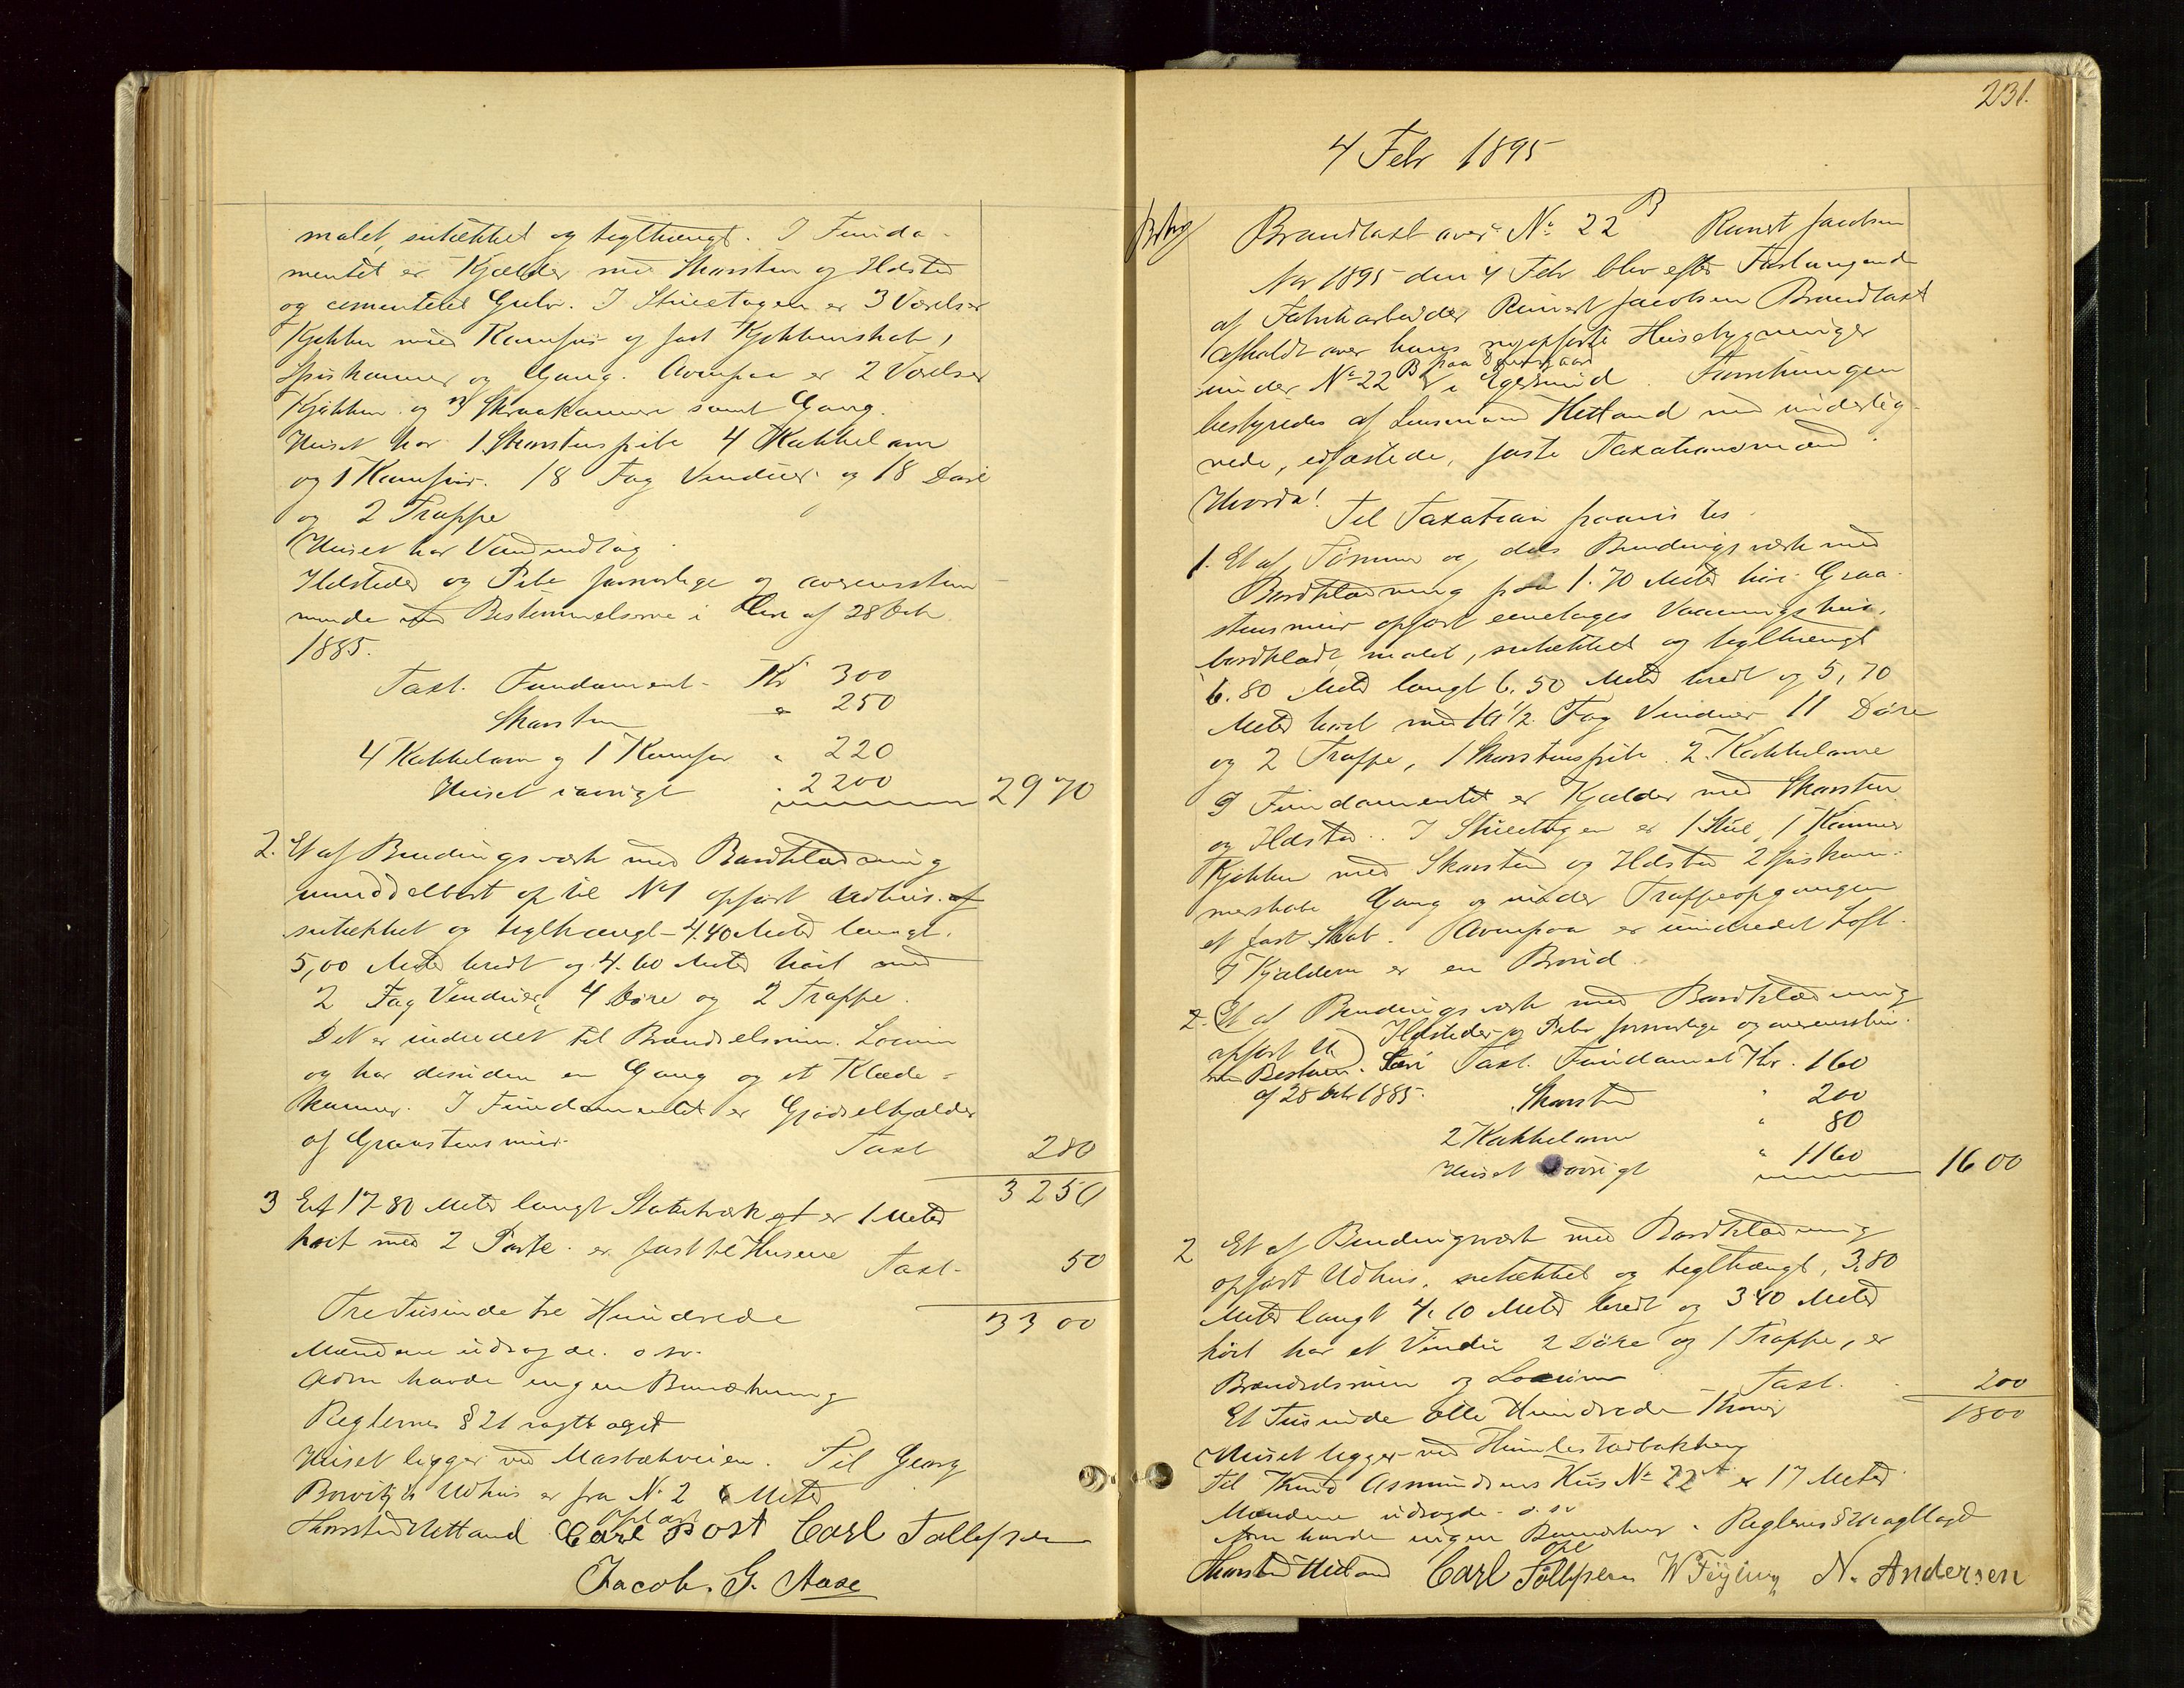 malet, sutækket og teglhængt. I Funda-
mentet er Kjælder med Skorsten og Ildsted
og cementeret Gulv. I Stueetagen er 3 Værelser
Kjøkken med Komfur og fast Kjøkkenskab,
Spiskammer og Gang. Ovenpaa er 2 Værelser
Kjøkken og 3 Skraakammere samt Gang.
Huset har 1 Skorstenspibe 4 Kakkelovne
og 1 Komfur. 18 Fag Vinduer og 18 Døre
og 2 Trappe
Huset har Vandindlæg.
Ildsteder og Pibe forsvarlige og overensstem-
mende med Bestemmelserne i Lov af 28 Octr
1885.
Taxt. Fundament - Kr 300
Skorsten " 250
4 Kakkelovne og 1 Komfur " 220
Huset iøvrigt " 2200 2970
2. Et af Bindingsværk med Bordklædning
umiddelbart op til No 1 opført Udhus. af
sutækket og teglhængt - 4.40 Meter langt.
5,00 Meter bredt og 4.60 Meter høit med
2 Fag Vinduer, 4 Døre og 2 Trappe.
Det er indredet til Brændselsrum. Locum
og har desuden en Gang og et Klæde-
kammer. I Fundamentet er Gjødselkjælder
af Graastensmur. Taxt 280
3250
3 Et 17-80 Meter langt Stakitværk er 1 Meter
høit med 2 Porte. er fast til Husene
Taxt - 50
Tretusinde tre Hundrede 3300
Mændene udsagde. osv.
Adm havde ingen Bemærkning
Reglernes § 21 iagttaget
Huset ligger ved Mosbækveien. Til Georg
Udhus er fra No 2 Meter
Thorsten Hetland Carl Post Carl Tollefsen
opl af
Jacob. G. Aase
231.
4 Febr 1895
Brandtaxt over No 22 B Reinert Jacobsen
Aar 1895 den 4 Febr blev efter Forlangende
af Fabrikarbeider Reinert Jacobsen Brandtaxt
afholdt over hans nyopførte Husebygninger
under No 22 B paa i Egersund. Forretningen
bestyredes af Lensmand Hetland med underteg-
nede, edfæstede, faste Taxationsmænd.
Hvorda!
Til Taxation paavistes.
1. Et af Tømmer og dels Bindingsværk med
Bordklædning paa 1.70 Meter høi Graa-
stensmur opført eenetages Vaaningshus,
bordklædt, malet, sutækket og teglhængt
6.80 Meter langt 6.50 Meter bredt og 5,70
Meter høit med 10 1/2 Fag Vinduer 11 Døre
og 2 Trappe, 1 Skorstenspibe 2 Kakkelovne
I Fundamentet er Kjælder med Skorsten
og Ildsted. I Stueetagen er 1 Stue, 1 Kammer
Kjøkken med Skorsten og Ildsted 2 Spiskam-
merskabe Gang og under Trappeopgangen
et fast Skab. Ovenpaa er uindredet Loft.
I Kjælderen er en Brønd.
2. Et af Bindingsværk med Bordklædning
opført U) Ildsteder og Pibe forsvarlige og overensstem.
med Bestem. i Lov Taxt. Fundament Kr. 160
af 28 Octr 1885. Skorsten " 200
2 Kakkelovne " 80
Huset iøvrigt " 1160 1600
2 Et af Bindingsværk med Bordklædning
opført Udhus. sutækket og teglhængt, 3,80
Meter langt 4,10 Meter bredt og 340 Meter
høit har et Vindu 2 Døre og 1 Trappe, er
Brændselsrum og Locum Taxt. 200
Et Tusinde otte Hundrede Kroner 1800
Huset ligger ved Humlestadbakken
Til Knud Asmundsens Hus No 22 A er 17 Meter
Mændene udsagde. o.s.v
Adm havde ingen Bemærkn. Reglernes § 21 iagttaget
Thorsten Hetland Carl Tollefsen W Feyling N. Andersen
opl